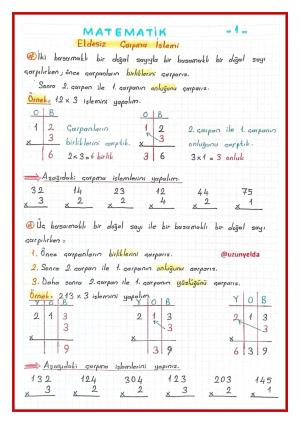 MATEMATİK -1-
Eldesiz Çarpma İşlemi
İki basamaklı bir doğal sayıyla bir basamaklı bir doğal sayı
çarpılırken; önce çarpanların birliklerini çarparız.
Sonra 2. çarpan ile 1. çarpanın onluğunu çarparız.
Örnek: 12 x 3 işlemini yapalım.
O B O B
1 2 Çarpanların 1 2 2. çarpan ile 1. çarpanın
3 birliklerini çarptık. 3 onluğunu çarptık.
x x
6 2x3=6 birlik 3 6 3x1=3 onluk
Aşağıdaki çarpma işlemlerini yapalım.
32 14 23 12 44 75
x 3 x 2 x 3 x 4 x 2 x 1
Üç basamaklı bir doğal sayı ile bir basamaklı bir doğal sayı
çarpılırken:
1. Önce çarpanların birliklerini çarparız. @uzunyelda
2. Sonra 2. çarpan ile 1. çarpanın onluğunu çarparız.
3. Daha sonra 2. çarpan ile 1. çarpanın yüzlüğünü çarparız.
Örnek: 213 x 3 işlemini yapalım.
Y O B Y O B Y O B
2 1 3 2 1 3 2 1 3
3 3 3
x x x
9 3 9 6 3 9
Aşağıdaki çarpma işlemlerini yapalım.
132 124 304 123 203 145
x 3 x 2 x 2 x 3 x 2 x 1